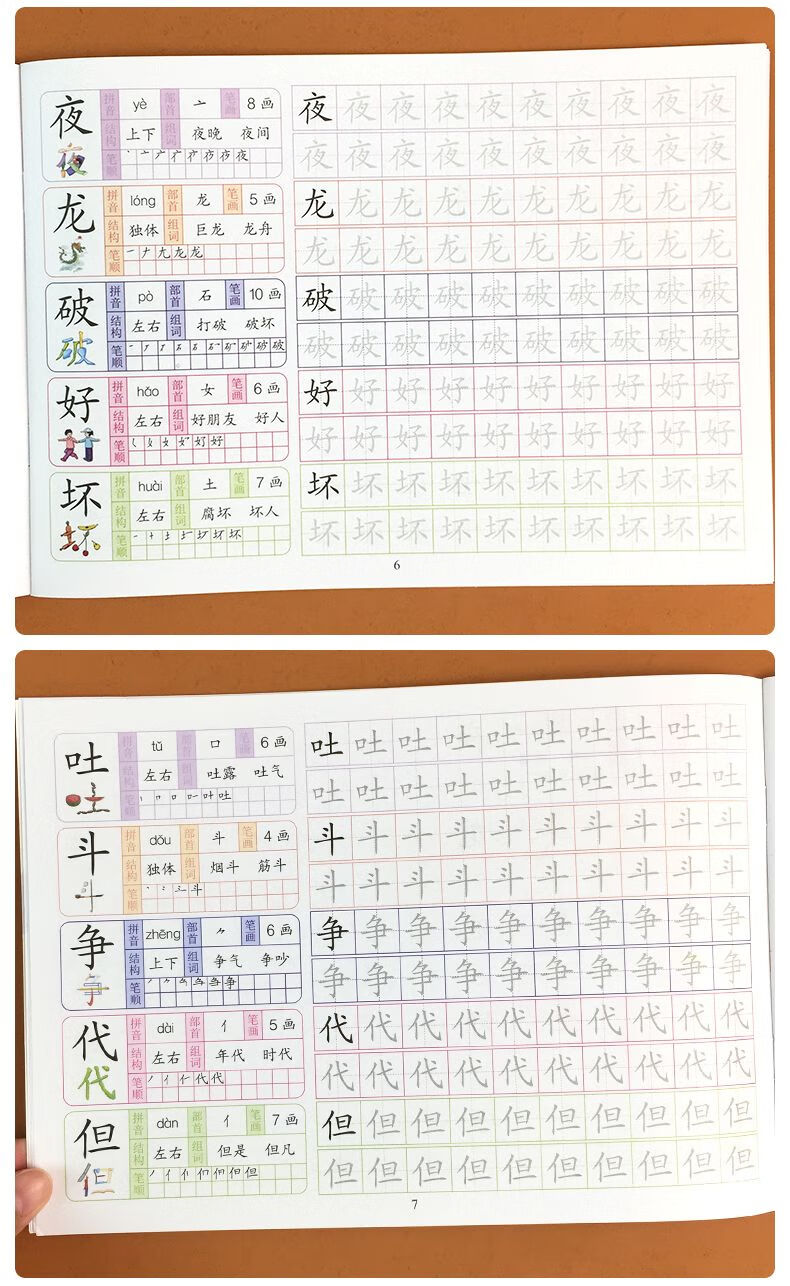 夜 拼音 yè 部首 亠 笔画 8画
结构 上下 组词 夜晚 夜间
夜 夜 夜 夜 夜 夜 夜 夜 夜 夜
夜 夜 夜 夜 夜 夜 夜 夜 夜 夜
龙 拼音 lóng 部首 龙 笔画 5画
结构 独体 组词 巨龙 龙舟
笔顺
龙 龙 龙 龙 龙 龙 龙 龙 龙 龙
龙 龙 龙 龙 龙 龙 龙 龙 龙 龙
破 拼音 pò 部首 石 笔画 10画
结构 左右 组词 打破 破坏
笔顺
破 破 破 破 破 破 破 破 破 破
破 破 破 破 破 破 破 破 破 破
好 拼音 hǎo 部首 女 笔画 6画
结构 左右 组词 好朋友 好人
笔顺
好 好 好 好 好 好 好 好 好 好
好 好 好 好 好 好 好 好 好 好
坏 拼音 huài 部首 土 笔画 7画
结构 左右 组词 腐坏 坏人
笔顺
坏 坏 坏 坏 坏 坏 坏 坏 坏 坏
坏 坏 坏 坏 坏 坏 坏 坏 坏 坏
6
吐 拼音 tǔ 部首 口 笔画 6画
结构 左右 组词 吐露 吐气
笔顺
吐 吐 吐 吐 吐 吐 吐 吐 吐 吐
吐 吐 吐 吐 吐 吐 吐 吐 吐 吐
斗 拼音 dǒu 部首 斗 笔画 4画
结构 独体 组词 烟斗 筋斗
笔顺
斗 斗 斗 斗 斗 斗 斗 斗 斗 斗
斗 斗 斗 斗 斗 斗 斗 斗 斗 斗
争 拼音 zhēng 部首 ⺈ 笔画 6画
结构 上下 组词 争气 争吵
笔顺
争 争 争 争 争 争 争 争 争 争
争 争 争 争 争 争 争 争 争 争
代 拼音 dài 部首 亻 笔画 5画
结构 左右 组词 年代 时代
笔顺
代 代 代 代 代 代 代 代 代 代
代 代 代 代 代 代 代 代 代 代
但 拼音 dàn 部首 亻 笔画 7画
结构 左右 组词 但是 但凡
笔顺
但 但 但 但 但 但 但 但 但 但
但 但 但 但 但 但 但 但 但 但
7